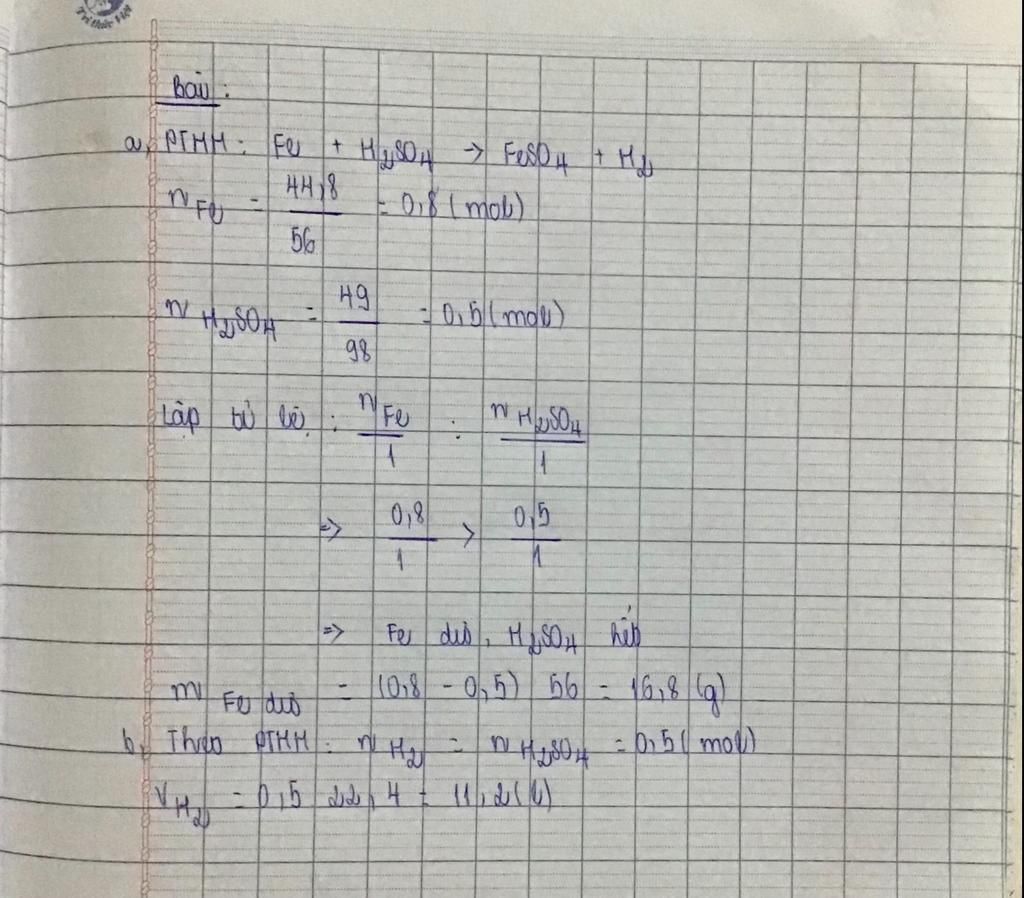 Trí thức Việt
Bài :
a, PTHH : Fe + H₂SO₄ → FeSO₄ + H₂
n Fe = 44,8 / 56 = 0,8 (mol)
n H₂SO₄ = 49 / 98 = 0,5 (mol)
Lập tỉ lệ : n Fe / 1 : n H₂SO₄ / 1
=> 0,8 / 1 > 0,5 / 1
=> Fe dư, H₂SO₄ hết
m Fe dư = (0,8 - 0,5) 56 = 16,8 (g)
b, Theo PTHH : n H₂ = n H₂SO₄ = 0,5 (mol)
V H₂ = 0,5 22,4 = 11,2 (l)